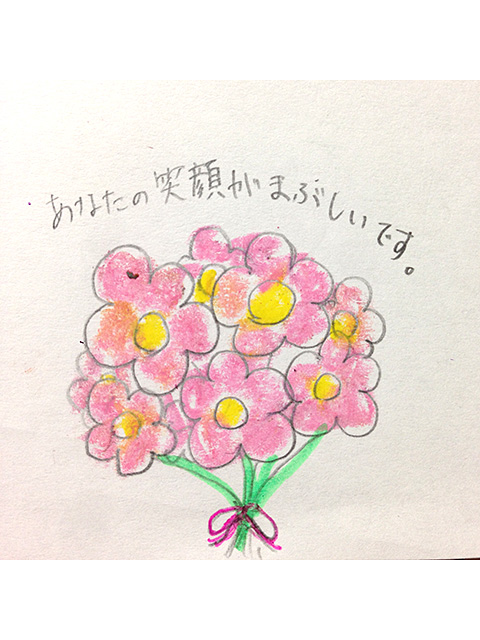 あなたの笑顔がまぶしいです。